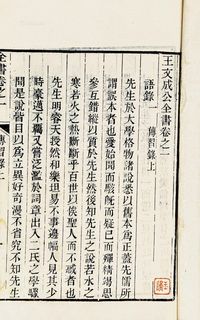 王文成公全書卷之一
語錄
傳習錄上
先生於大學格物諸說悉以舊本為正蓋先儒所
謂誤本者也愛始聞而駭既而疑已而殫精竭思
參互錯縱以質於先生然後知先生之說若水之
寒若火之熱斷斷乎百世以俟聖人而不惑者也
先生明睿天授然和樂坦易不事邊幅人見其少
時豪邁不羈又嘗泛濫於詞章出入二氏之學驟
聞是說皆目以為立異好奇漫不省究不知先生
全書卷之一